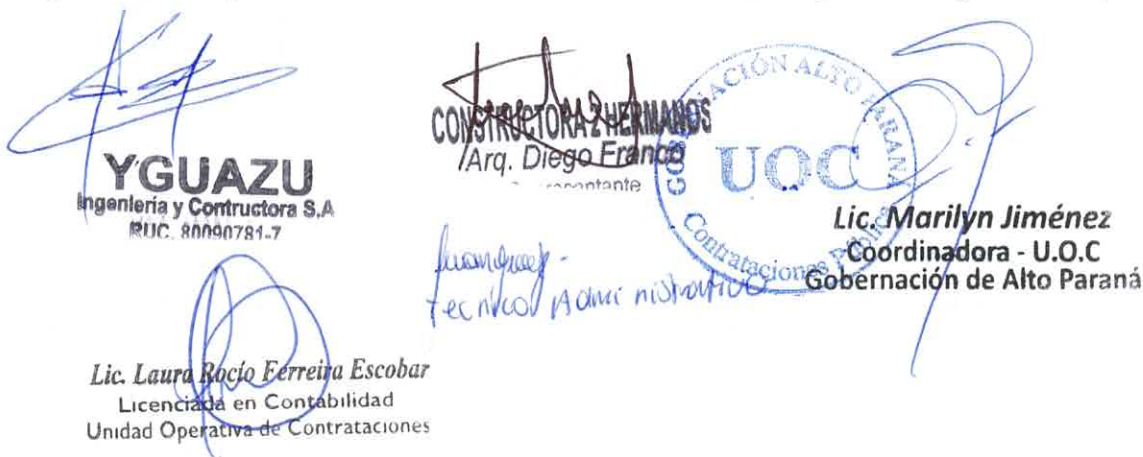 YGUAZU
Ingeniería y Contructora S.A
RUC. 80090781-7
CONSTRUCTORA 2 HERMANOS
Arq. Diego Franco
GOBERNACIÓN ALTO PARANÁ
UOC
Contrataciones Pública
Lic. Marilyn Jiménez
Coordinadora - U.O.C
Gobernación de Alto Paraná
Tecnico Administrativo
Lic. Laura Rocío Ferreira Escobar
Licenciada en Contabilidad
Unidad Operativa de Contrataciones